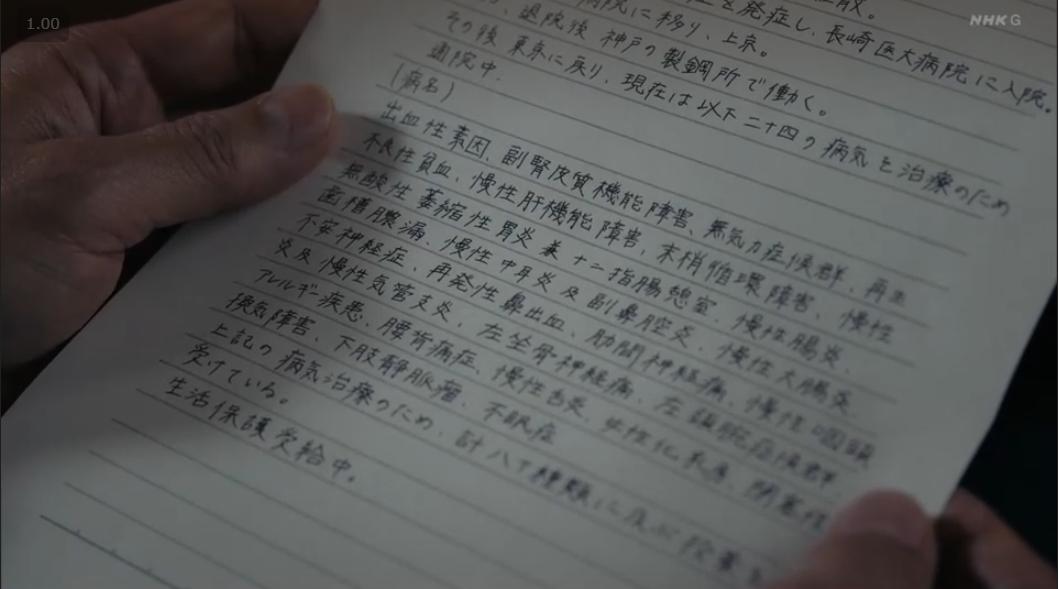 1.00
NHK G
を発症し、長崎医大病院に入院。
病院に移り、上京。
退院後 神戸の製鋼所で働く。
その後 東京に戻り、現在は以下二十四の病気を治療のため
通院中。
(病名)
出血性素因、副腎皮質機能障害、無気力症候群、再生
不良性貧血、慢性肝機能障害、末梢循環障害、慢性
無酸性萎縮性胃炎兼十二指腸憩室、慢性腸炎、
歯槽膿漏、慢性中耳炎及副鼻腔炎、慢性大腸炎、
不安神経症、再発性鼻出血、肋間神経痛、慢性咽頭
炎及慢性気管支炎、左坐骨神経痛、左頸腕症候群、
アレルギー疾患、腰背痛症、慢性舌炎、閉塞性
換気障害、下肢静脈瘤、不眠症
上記の病気治療のため、計八十種類に及ぶ投薬を
受けている。
生活保護受給中。